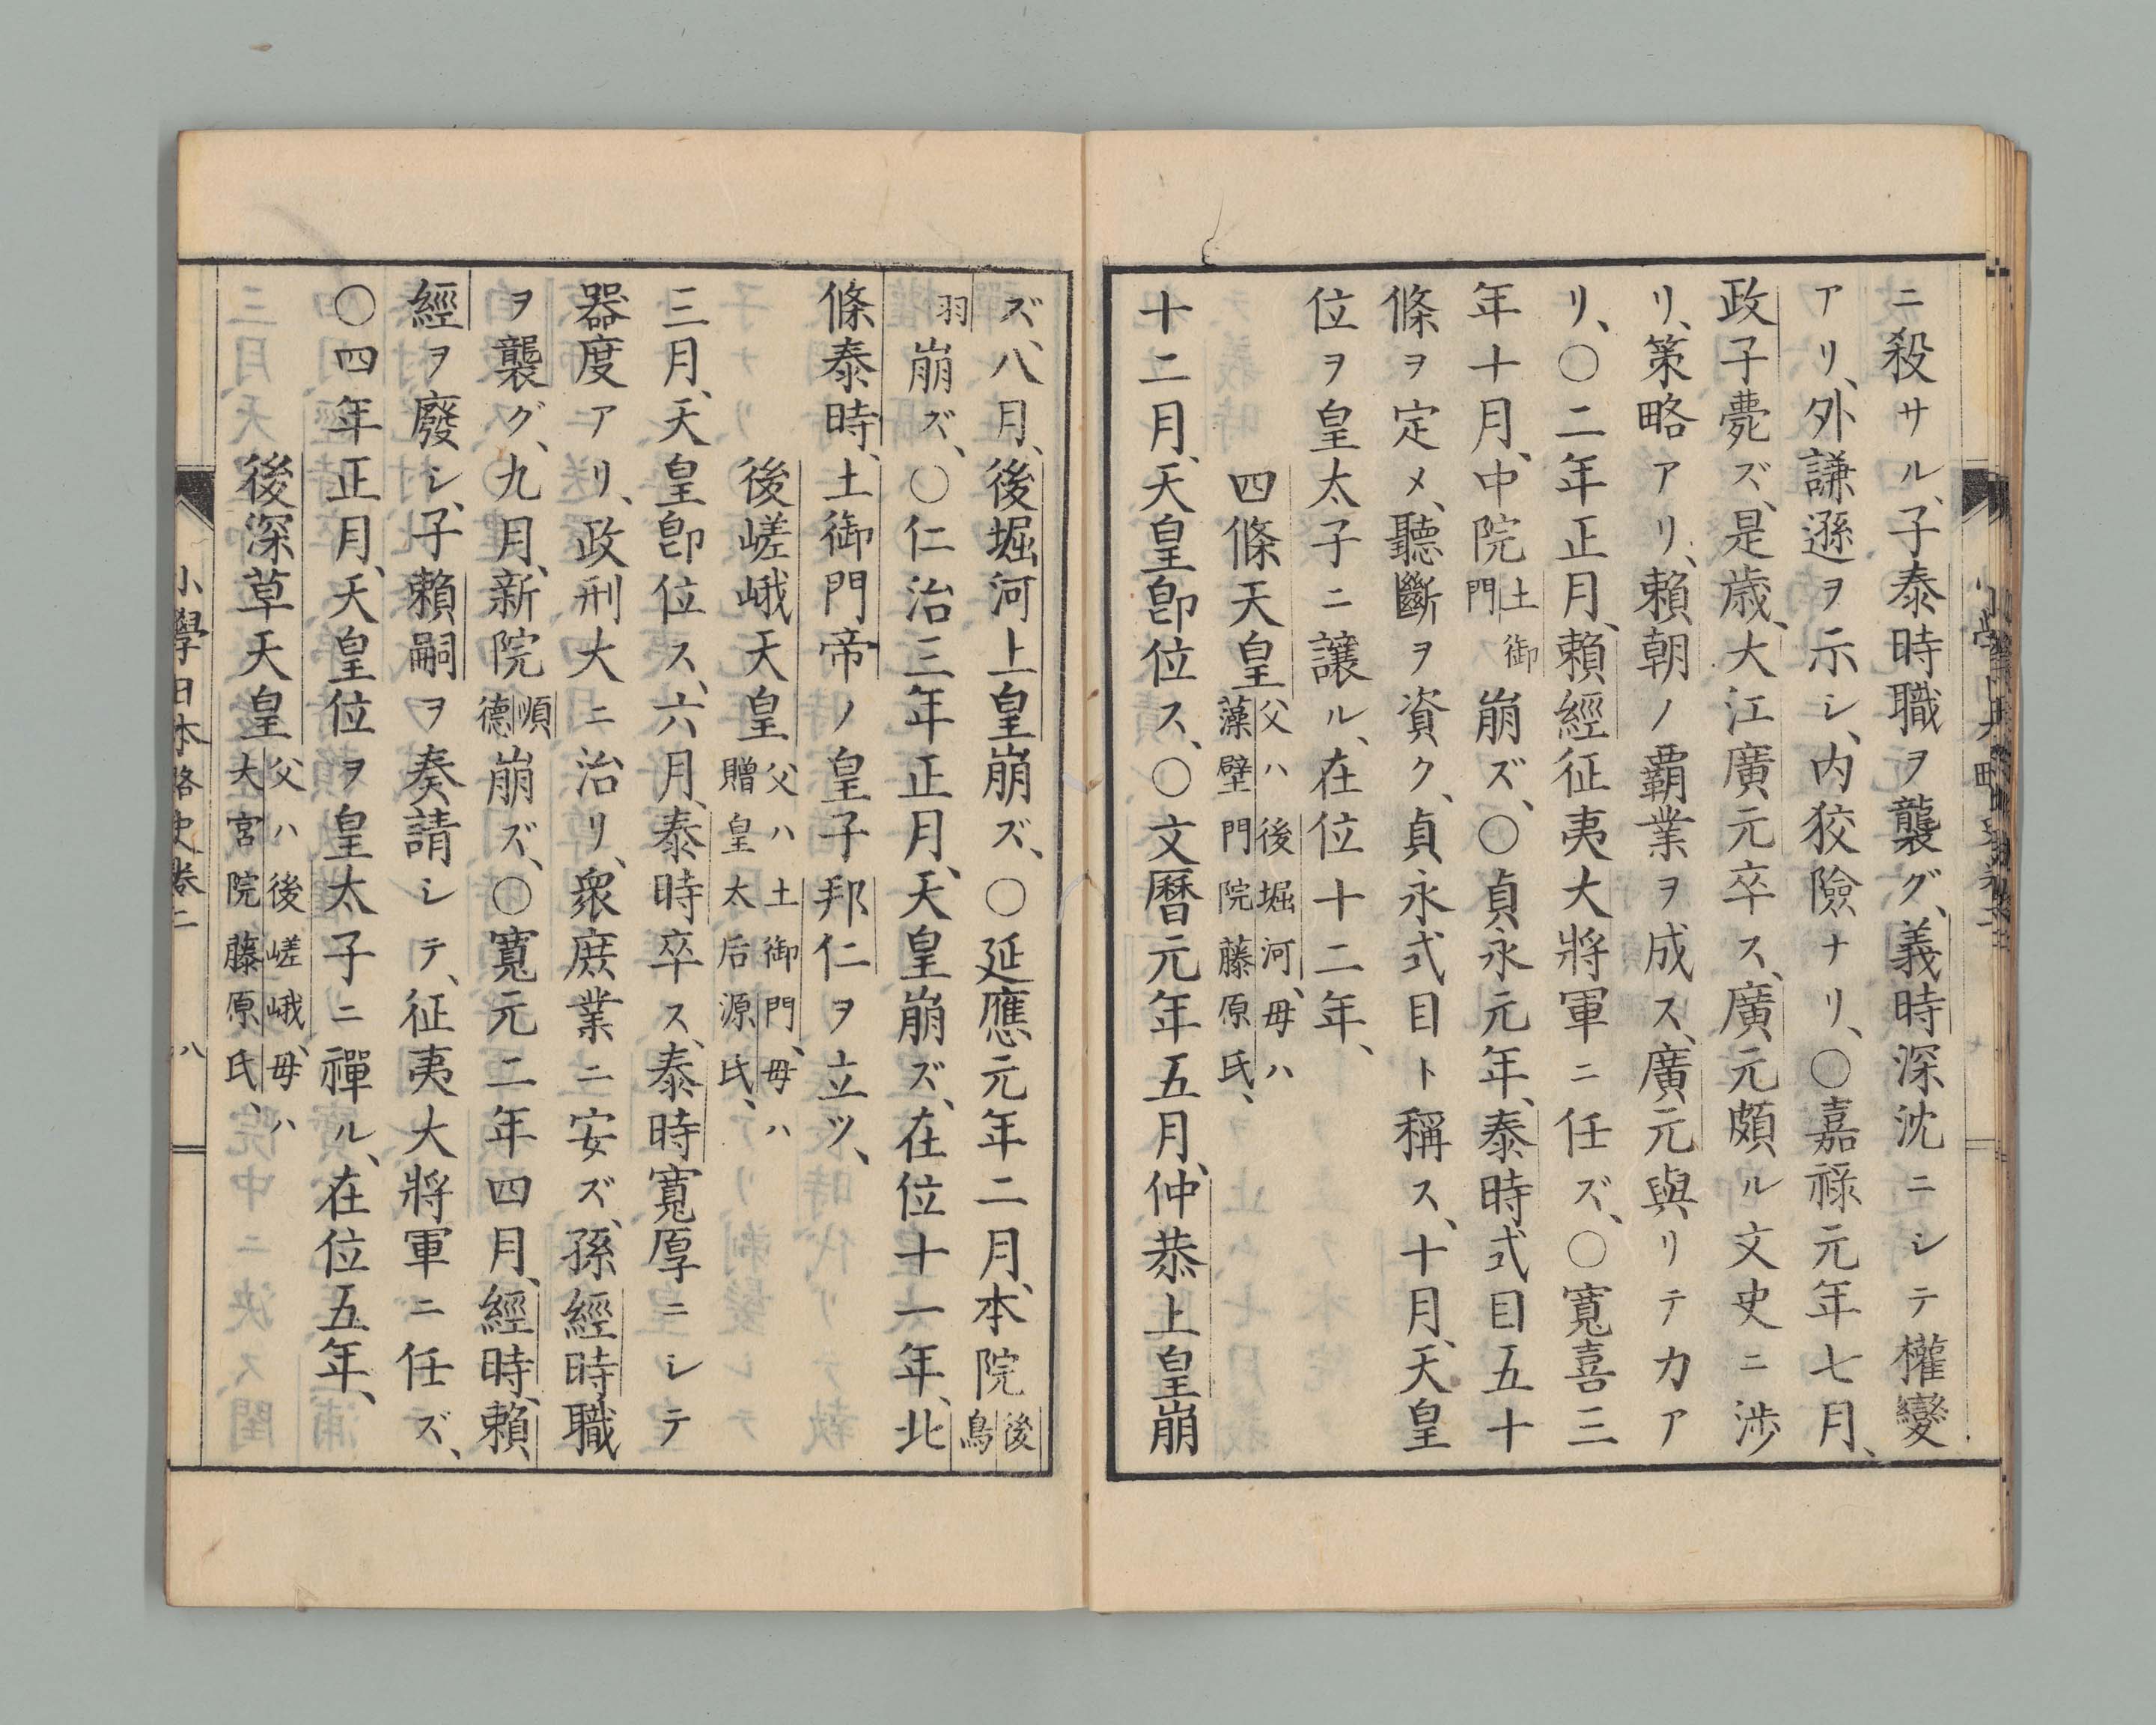 ニ殺サル、子泰時職ヲ襲グ、義時深沈ニシテ權變
アリ、外謙遜ヲ示シ、内狡險ナリ、〇嘉祿元年七月、
政子薨ズ、是歳、大江廣元卒ス、廣元頗ル文史ニ渉
リ、策略アリ、頼朝ノ覇業ヲ成ス、廣元與リテカア
リ、〇二年正月、頼經征夷大將軍ニ任ズ、〇寬喜三
年十月、中院土御門崩ズ、〇貞永元年、泰時式目五十
條ヲ定メ、聽斷ヲ資ク、貞永式目ト稱ス、十月、天皇
位ヲ皇太子ニ讓ル、在位十二年、
四條天皇父ハ後堀河、母ハ藻壁門院藤原氏、
十二月、天皇卽位ス、〇文曆元年五月、仲恭上皇崩
ズ、八月、後堀河上皇崩ズ、〇延應元年二月、本院後鳥
羽崩ズ、〇仁治三年正月、天皇崩ズ、在位十一年、北
條泰時、土御門帝ノ皇子邦仁ヲ立ツ、
後嵯峨天皇父ハ土御門、母ハ贈皇太后源氏、
三月、天皇卽位ス、六月、泰時卒ス、泰時寬厚ニシテ
器度アリ、政刑大ニ治リ、衆庶業ニ安ズ、孫經時職
ヲ襲グ、九月、新院順德崩ズ、〇寬元二年四月、經時、頼
經ヲ廢シ、子頼嗣ヲ奏請シテ、征夷大將軍ニ任ズ、
〇四年正月、天皇位ヲ皇太子ニ禪ル、在位五年、
後深草天皇父ハ後嵯峨、母ハ大宮院藤原氏、
小學日本略史卷二 八